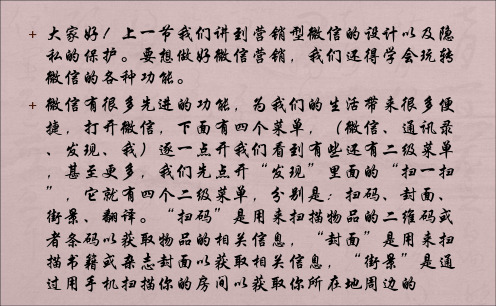 + 大家好！上一节我们讲到营销型微信的设计以及隐
私的保护。要想做好微信营销，我们还得学会玩转
微信的各种功能。
+ 微信有很多先进的功能，为我们的生活带来很多便
捷，打开微信，下面有四个菜单，（微信、通讯录
、发现、我）逐一点开我们看到有些还有二级菜单
，甚至更多，我们先点开“发现”里面的“扫一扫
”，它就有四个二级菜单，分别是：扫码、封面、
街景、翻译。“扫码”是用来扫描物品的二维码或
者条码以获取物品的相关信息，“封面”是用来扫
描书籍或杂志封面以获取相关信息，“街景”是通
过用手机扫描你的房间以获取你所在地周边的